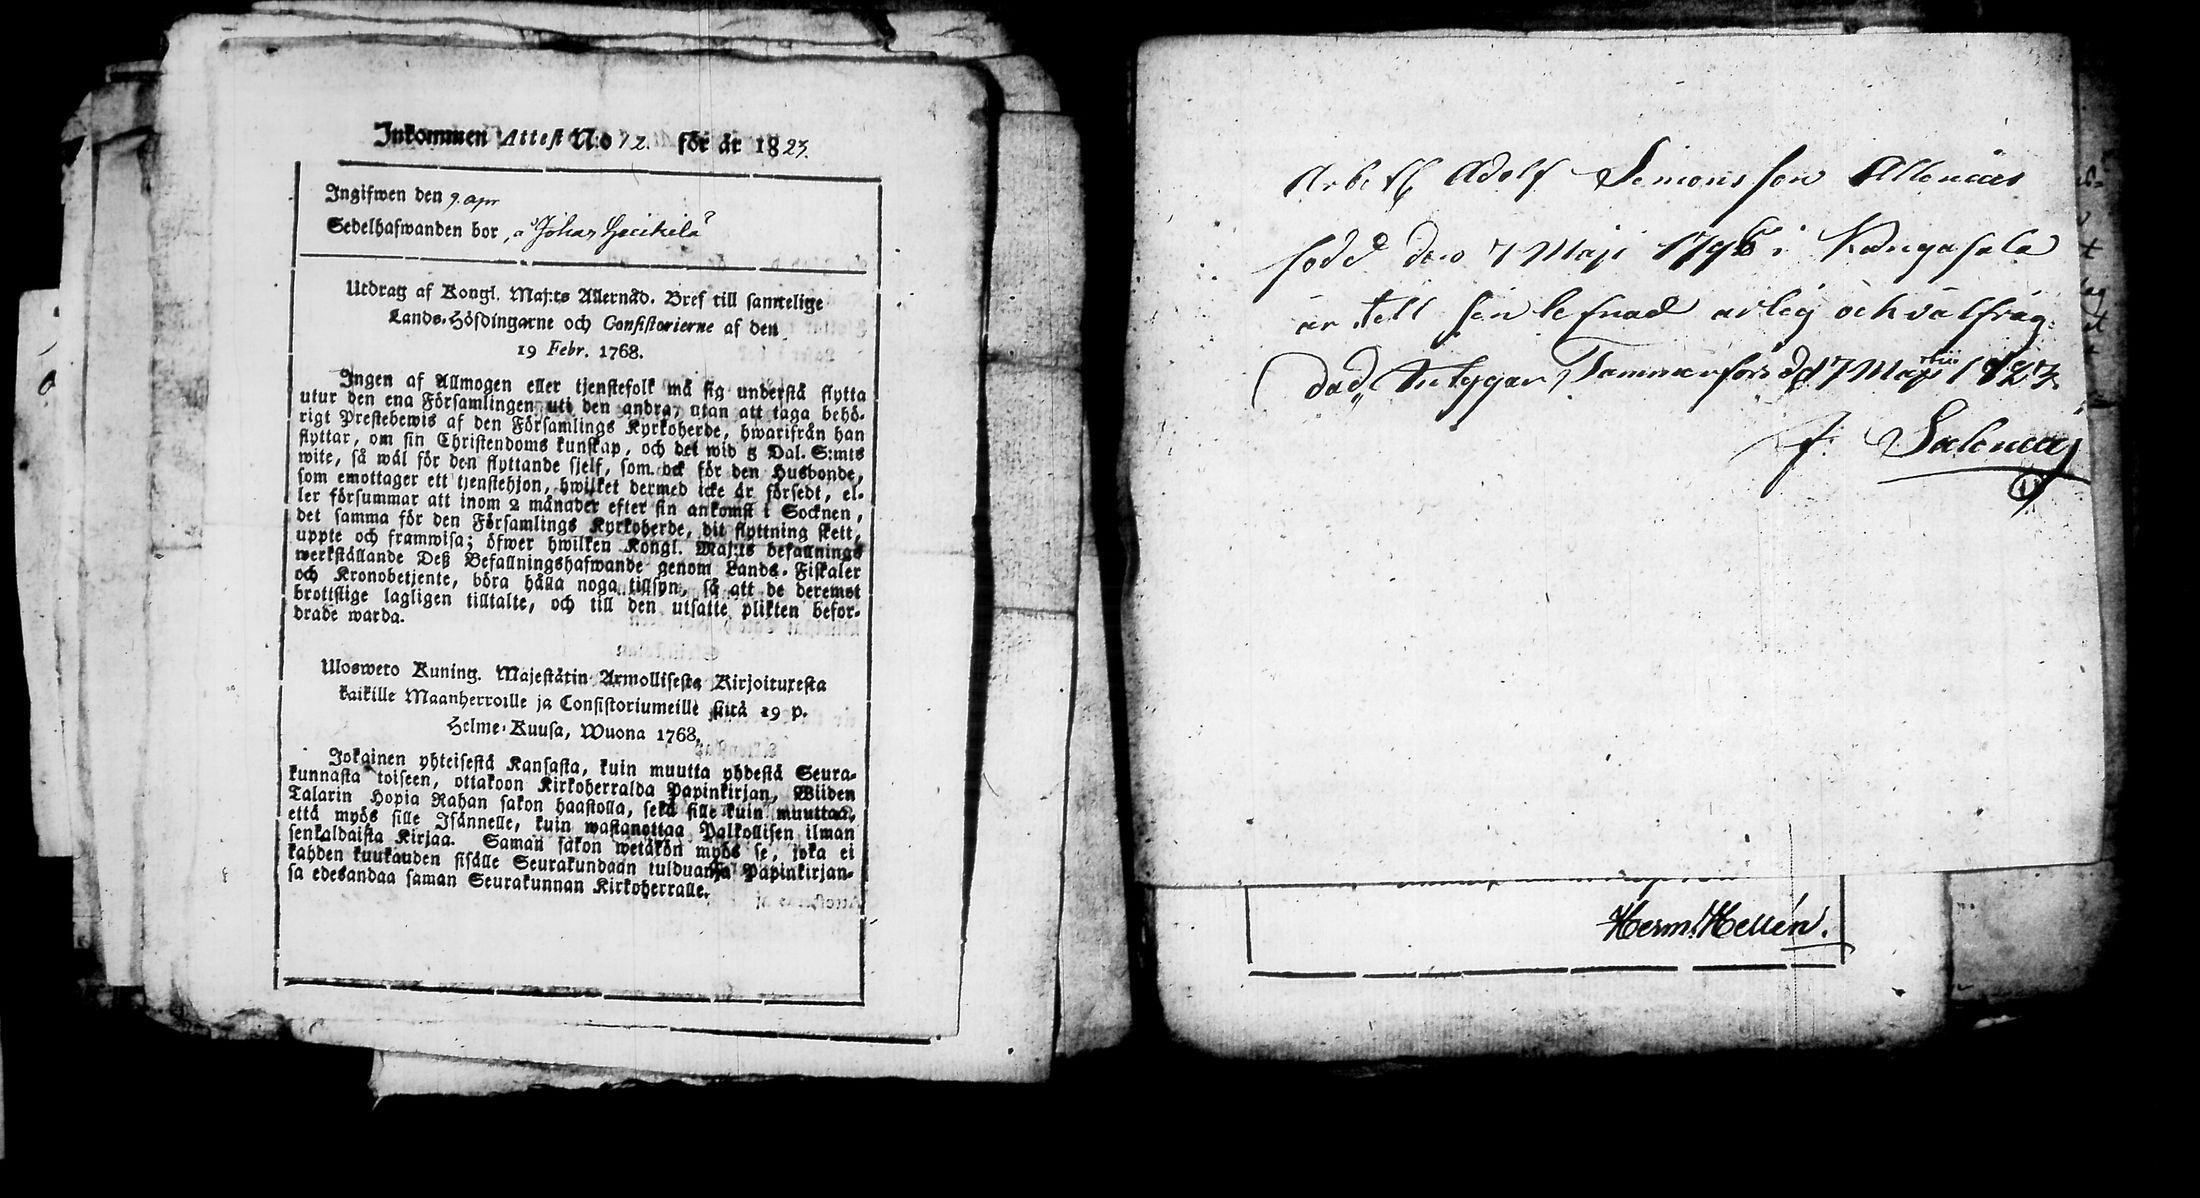 Inkommen Attest N:o 12. för år 1823.
Ingifwen den 9. apr
Sedelhafwanden bor, å Johas Heikkilä
Utdrag af Kongl. Maj:ts Allernåd. Bref till samtelige
Lands-Höfdingarne och Consistorierne af den
19 Febr. 1768.
Ingen af Allmogen eller tjenstefolk må sig understå flytta
utur den ena Församlingen uti den andra, utan att taga behö-
rigt Prestebewis af den Församlings Kyrkoherde, hwarifrån han
flyttar, om sin Christendoms kunskap, och det wid 5 Dal. S:mts
wite, så wäl för den flyttande sjelf, som ock för den Husbonde,
som emottager ett tjenstehjon, hwilket dermed icke är försedt, el-
ler försummar att inom 2 månader efter sin ankomst i Socknen,
det samma för den Församlings Kyrkoherde, dit flyttning skett,
uppte och framwisa; öfwer hwilken Kongl. Maj:ts befallnings
werkställande Deß Befallningshafwande genom Lands-Fiskaler
och Kronobetjente, böra hålla noga tillsyn, så att de deremot
brottslige lagligen tilltalte, och till den utsatte plikten befor-
drade warda.
Uloswero Kuning. Majestätin Armollisesta Kirjoituxesta
kaikille Maanherroille ja Consistoriumeille siitä 19 p.
Helme-Kuusa, Wuona 1768.
Jokainen yhteisestä Kansasta, kuin muutta yhdestä Seura-
kunnasta toiseen, ottakoon Kirkoherralda Papinkirjan, Wiiden
Talarin Hopia Rahan sakon haastolla, sekä sille kuin muuttaa,
että myös sille Isännelle, kuin wastanottaa Palkollisen ilman
senkaldaista Kirjaa. Saman sakon wetäkön myös se, joka ei
kahden kuukauden sisälle Seurakundaan tulduansa Papinkirjan-
sa edesandaa saman Seurakunnan Kirkoherralle.
Adolf Simonsson
född den 7 Maji 1796 i Kangasala
är till sin lefnad ärlig och välfräg-
dad, intygar Tammerfors d 17 Martii 1823
J. Salonius
Herm. Hellén.